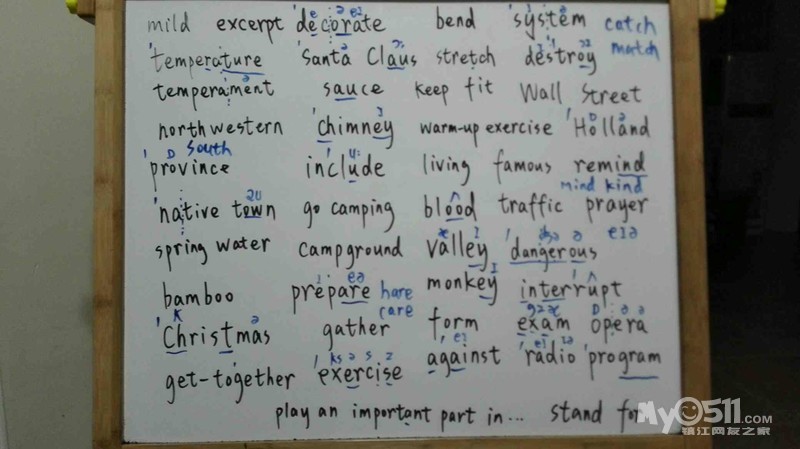 mild excerpt 'decorate bend 'system catch
'temperature 'Santa Claus stretch destroy match
temperament sauce keep fit Wall Street
northwestern 'chimney warm-up exercise 'Holland
'province south include living famous remind
mind kind
'native town go camping blood traffic prayer
spring water campground valley 'dangerous
bamboo prepare hare care monkey interrupt
'Christmas gather form exam opera
get-together 'exercise against 'radio 'program
play an important part in... stand for
My0511.com
镇江网友之家